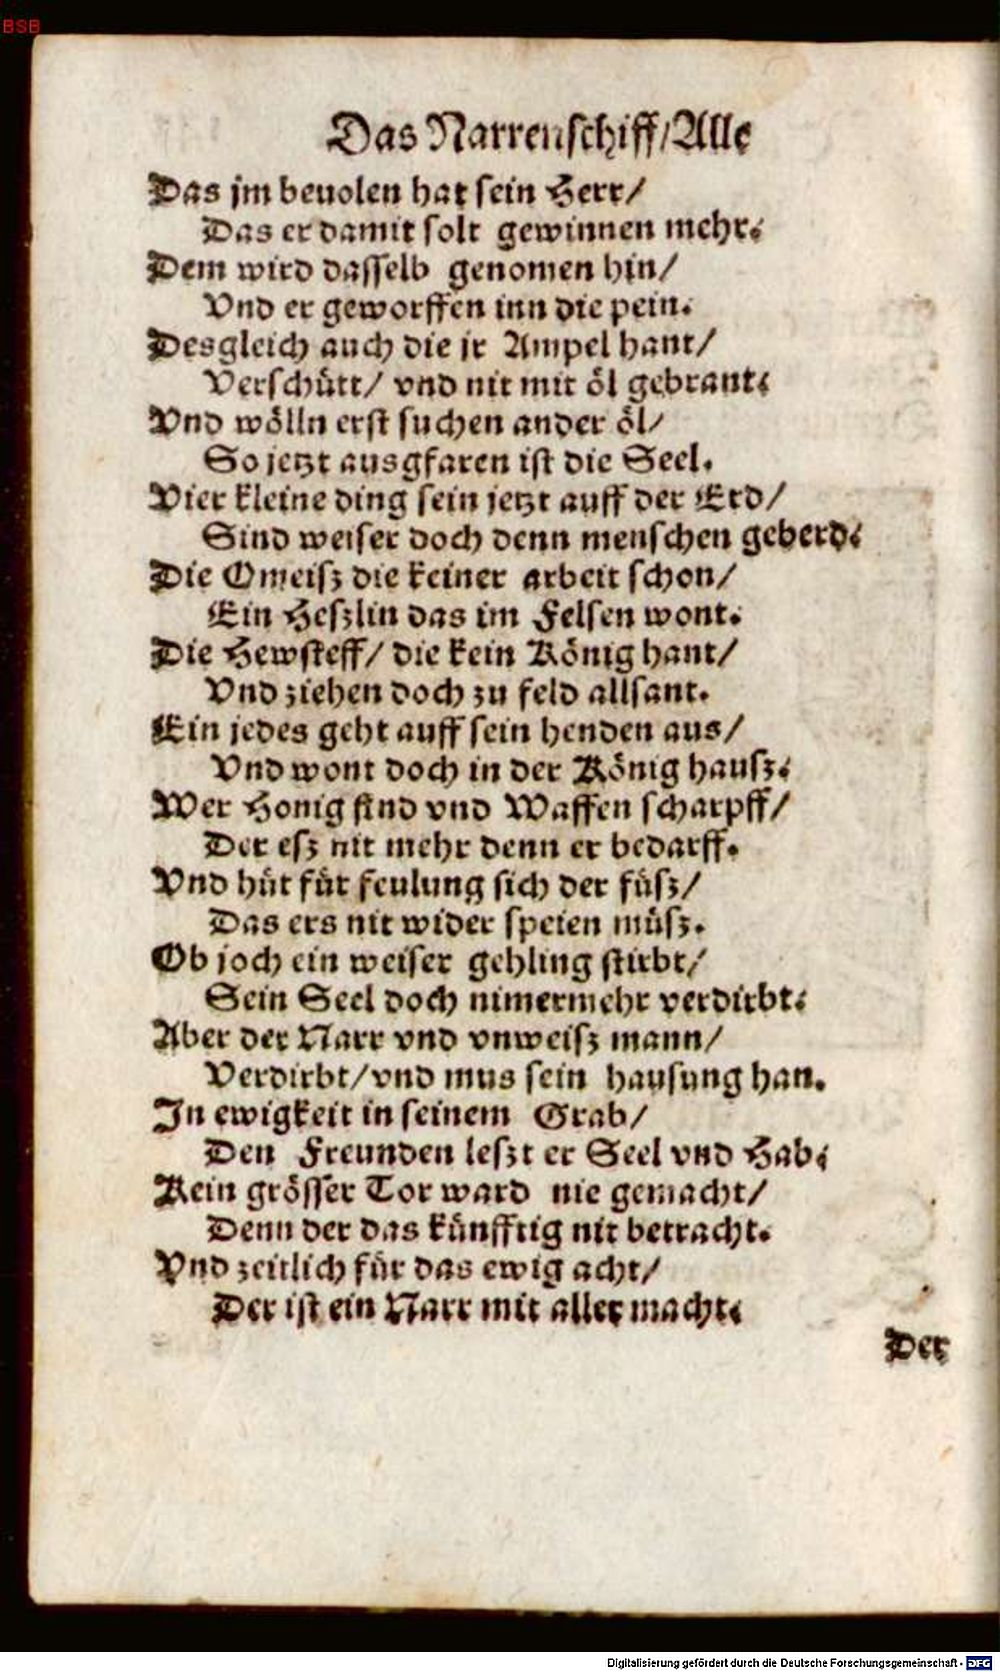 BSB
Das Narrenschiff/Alle
Das jm beuolen hat sein Herr/
Das er damit solt gewinnen mehr.
Dem wird dasselb genomen hin/
Vnd er geworffen inn die pein.
Desgleich auch die jr Ampel hant/
Verschütt/ vnd nit mit öl gebrant.
Vnd wölln erst suchen ander öl/
So jetzt ausgfaren ist die Seel.
Vier kleine ding sein jetzt auff der Erd/
Sind weiser doch denn menschen geberd.
Die Omeisz die keiner arbeit schon/
Ein Heszlin das im Felsen wont.
Die Hewsteff/ die kein König hant/
Vnd ziehen doch zu feld allsant.
Ein jedes geht auff sein henden aus/
Vnd wont doch in der König hausz.
Wer Honig find vnd Waffen scharpff/
Der esz nit mehr denn er bedarff.
Vnd hüt für feulung sich der füsz/
Das ers nit wider speien müsz.
Ob joch ein weiser gehling stirbt/
Sein Seel doch nimermehr verdirbt.
Aber der Narr vnd vnweisz mann/
Verdirbt/vnd mus sein hausung han.
In ewigkeit in seinem Grab/
Den Freunden leszt er Seel vnd Hab.
Kein grösser Tor ward nie gemacht/
Denn der das künfftig nit betracht.
Vnd zeitlich für das ewig acht/
Der ist ein Narr mit aller macht.
Der
Digitalisierung gefördert durch die Deutsche Forschungsgemeinschaft - DFG